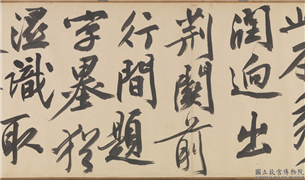 潤迥出
荊關前
行間題
字墨猶
濕識取
國立故宮博物院